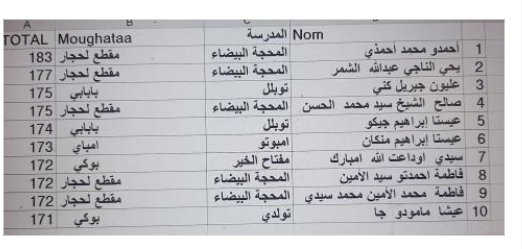 A B C D
TOTAL Moughataa المدرسة Nom
1 أحمدو محمد أحمذي المحجة البيضاء مقطع لحجار 183
2 يحي الناجي عبدالله الشمر المحجة البيضاء مقطع لحجار 177
3 عليون جبريل كني توبلل بابابي 175
4 صالح الشيخ سيد محمد الحسن المحجة البيضاء مقطع لحجار 175
5 عيستا إبراهيم جيكو توبلل بابابي 174
6 عيستا إبراهيم منكان امبوتو امباي 173
7 سيدي اوداعت الله امبارك مفتاح الخير بوكي 172
8 فاطمة احمدتو سيد الأمين المحجة البيضاء مقطع لحجار 172
9 فاطمة محمد الأمين محمد سيدي المحجة البيضاء مقطع لحجار 172
10 عيشا مامودو جا تولدي بوكي 171